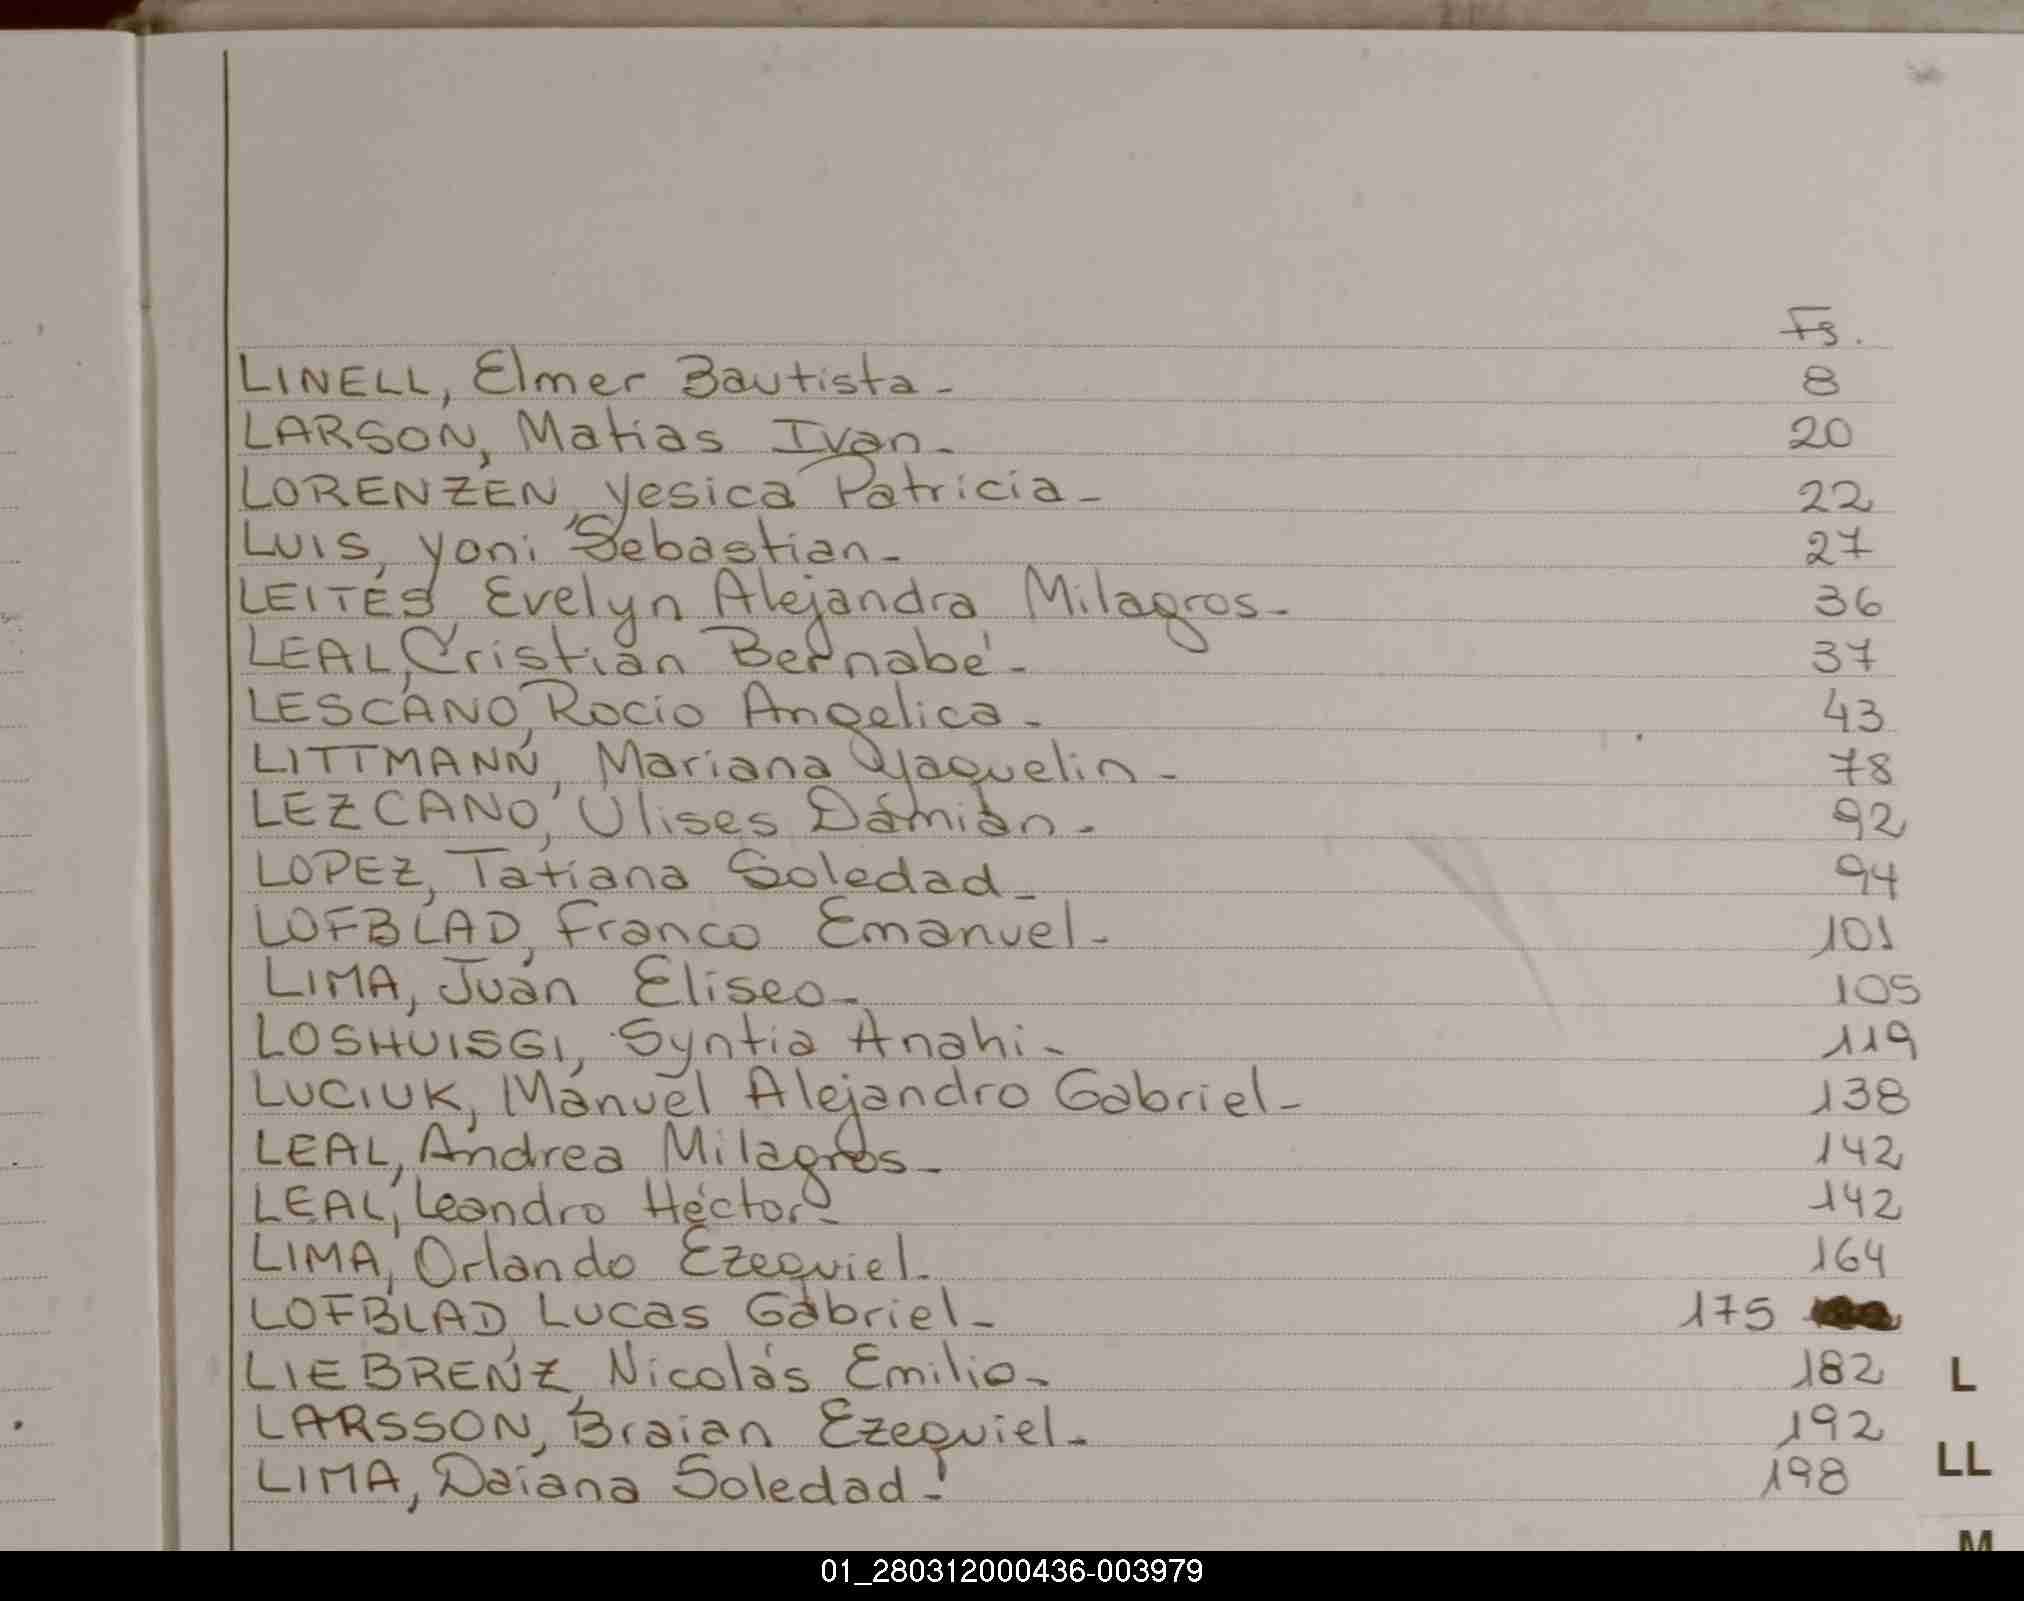 Fs.
LINELL, Elmer Bautista - 8
LARSON, Matias Ivan - 20
LORENZEN, Yesica Patricia - 22
LUIS, Yoni Sebastian - 27
LEITES, Evelyn Alejandra Milagros - 36
LEAL, Cristian Bernabé - 37
LESCANO, Rocio Angelica - 43
LITTMANN, Mariana Yaquelin - 78
LEZCANO, Ulises Damián - 92
LOPEZ, Tatiana Soledad - 94
LOFBLAD, Franco Emanuel - 101
LIMA, Juan Eliseo - 105
LOSHUISGI, Syntia Anahi - 119
LUCIUK, Manuel Alejandro Gabriel - 138
LEAL, Andrea Milagros - 142
LEAL, Leandro Héctor - 142
LIMA, Orlando Ezequiel - 164
LOFBLAD, Lucas Gabriel - 175
LIEBRENZ, Nicolás Emilio - 182 L
LARSSON, Braian Ezequiel - 192
LL
LIMA, Daiana Soledad - 198
M
01_280312000436-003979